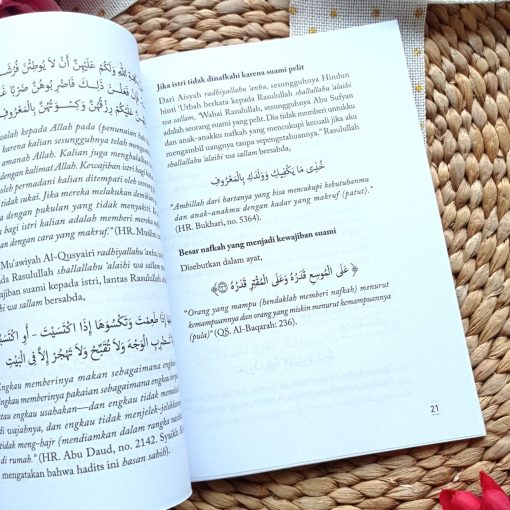 اللهِ وَلَكُمْ عَلَيْهِنَّ أَنْ لَا يُوطِئْنَ فُرُشَ
فَعَلْنَ ذَلِكَ فَاضْرِبُوهُنَّ ضَرْبًا غَ
عَلَيْكُمْ رِزْقُهُنَّ وَكِسْوَتُهُنَّ بِالْمَعْرُوفِ
walah kepada Allah pada (penunaian ha
karena kalian sesungguhnya telah meng
amanah Allah. Kalian juga menghalal
dengan kalimat Allah. Kewajiban istri bagi
permadani kalian ditempati oleh orang
tidak sukai. Jika mereka melakukan demikian
dengan pukulan yang tidak menyakiti. K
bagi istri kalian adalah memberi mereka
dengan cara yang makruf." (HR. Muslim
Mu'awiyah Al-Qusyairi radhiyallahu 'anhu,
pada Rasulullah shallallahu 'alaihi wa sallam
wajiban kepada istri, lantas Rasulullah
wa sallam bersabda,
إِذَا طَعِمْتَ وَتَكْسُوَهَا إِذَا اكْتَسَيْتَ - أَوِ اكْتَسَبْ
تَضْرِبِ الْوَجْهَ وَلَا تُقَبِّحْ وَلَا تَهْجُرْ إِلَّا فِي الْبَيْتِ
Engkau memberinya makan sebagaimana engkau
engkau memberinya pakaian sebagaimana engkau berpa
atau engkau usahakan—dan engkau tidak
di wajahnya, dan engkau tidak menjelek-jelekkannya
tidak meng-hajr (mendiamkan dalam rangka nasih
di rumah." (HR. Abu Daud, no. 2142. Syaikh
mengatakan bahwa hadits ini hasan sahih).
Jika istri tidak dinafkahi karena suami pelit
Dari Aisyah radhiyallahu 'anha, sesungguhnya Hindun
binti 'Utbah berkata kepada Rasulullah shallallahu 'alaihi
wa sallam, "Wahai Rasulullah, sesungguhnya Abu Sufyan
adalah seorang suami yang pelit. Dia tidak memberi untukku
dan anak-anakku nafkah yang mencukupi kecuali jika aku
mengambil uangnya tanpa sepengetahuannya." Rasulullah
shallallahu 'alaihi wa sallam bersabda,
خُذِي مَا يَكْفِيكِ وَوَلَدَكِ بِالْمَعْرُوفِ
"Ambillah dari hartanya yang bisa mencukupi kebutuhanmu
dan anak-anakmu dengan kadar yang makruf (patut)."
(HR. Bukhari, no. 5364).
Besar nafkah yang menjadi kewajiban suami
Disebutkan dalam ayat,
﴿ عَلَى الْمُوسِعِ قَدَرُهُ وَعَلَى الْمُقْتِرِ قَدَرُهُ ﴾
"Orang yang mampu (hendaklah memberi nafkah) menurut
kemampuannya dan orang yang miskin menurut kemampuannya
(pula)" (QS. Al-Baqarah: 236).
21